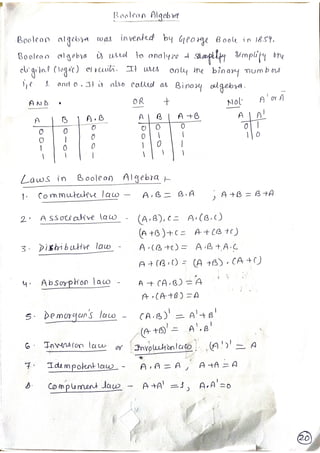 Boolean Algebra
Boolean algebra was invented by George Boole in 1854.
Boolean algebra is used to analyze & simplify the
digital (logic) circuits. It uses only the binary numbers
i.e 1 and 0. It is also called as Binary algebra.
AND • OR + NOT A' or Ā
A B A.B A B A+B A A'
0 0 0 0 0 0 0 1
0 1 0 0 1 1 1 0
1 0 0 1 0 1
1 1 1 1 1 1
Laws in Boolean Algebra :-
1. Commutative law - A.B = B.A , A+B = B+A
2. Associative law - (A.B).C = A.(B.C)
(A+B)+C = A+(B+C)
3. Distributive law - A.(B+C) = A.B + A.C
A+(B.C) = (A+B).(A+C)
4. Absorption law - A+(A.B) = A
A.(A+B) = A
5. Demorgan's law - (A.B)' = A'+B'
(A+B)' = A'.B'
6. Invention law or Involution law : (A')' = A
7. Idempotent law - A.A = A , A+A = A
8 Complement law - A+A' = 1, A.A' = 0
20